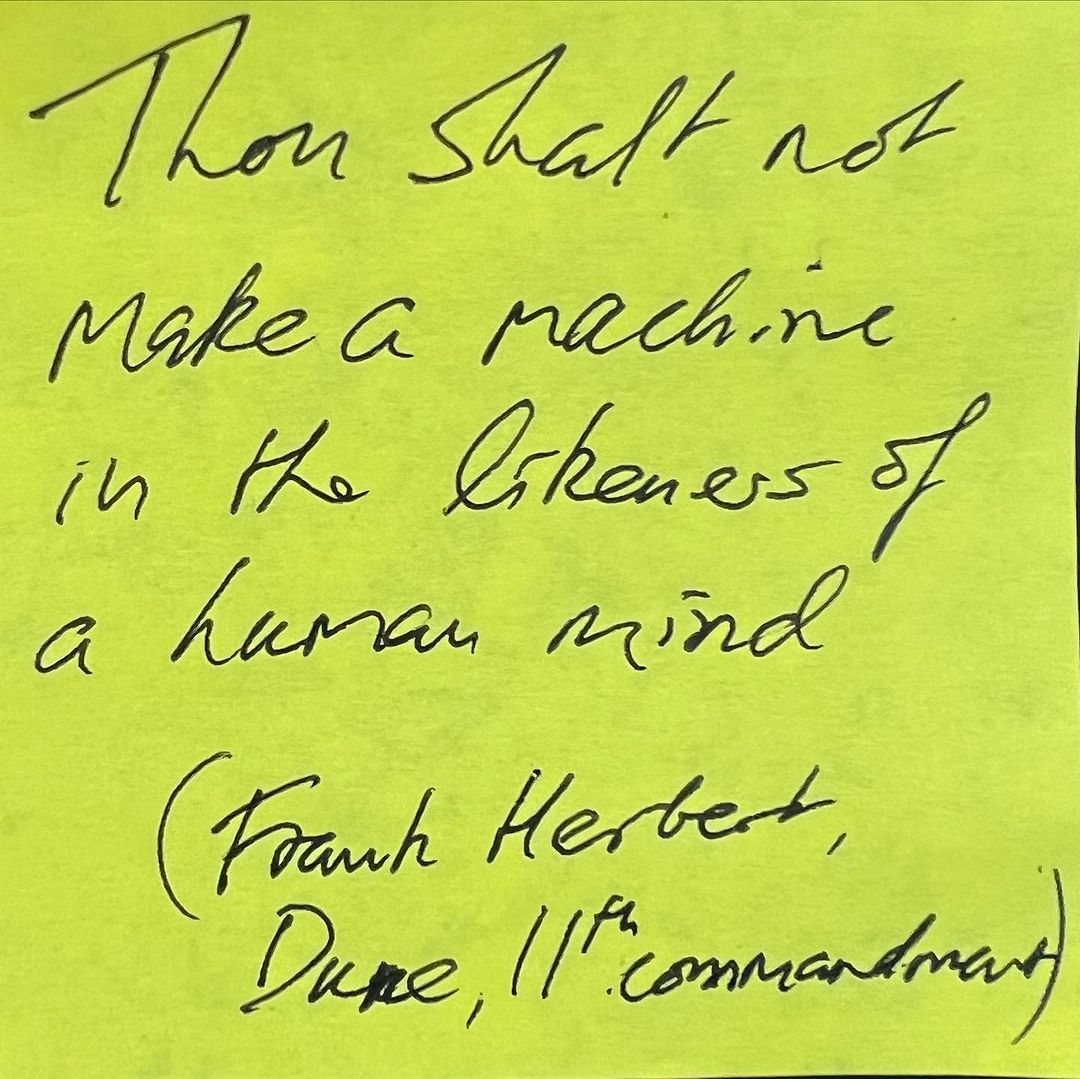 Thou shalt not
make a machine
in the likeness of
a human mind
(Frank Herbert,
Dune, 11th commandment)